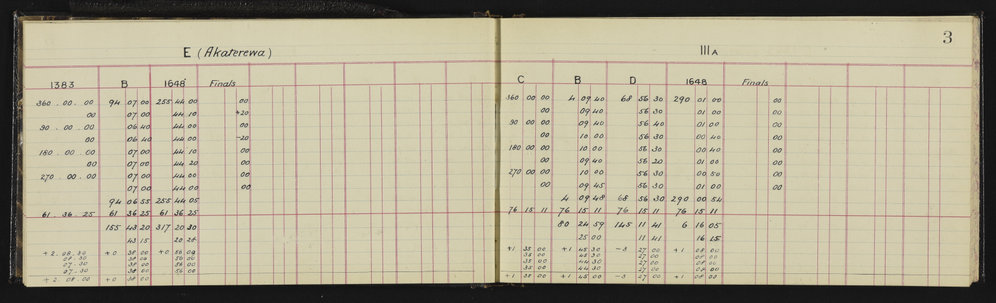 3
E (Akaterewa)
1383 B 1648 Finals
360 . 00 . 00 94 07 00 255 44 00 00
00 07 00 44 10 +20
90 . 00 . 00 06 40 44 00 00
00 06 40 44 00 -20
180 . 00 . 00 07 00 44 10 00
00 07 00 44 20 00
270 . 00 . 00 07 00 44 00 00
07 00 44 00 00
94 06 55 255 44 05
61 . 36 . 25 61 36 25 61 36 25
155 43 20 317 20 30
43 15
+ 2 . 08 . 30 + 0 38 00 + 0 56 00
08 . 30 38 00 56 00
07 . 30 38 00 56 00
07 . 30 38 00 56 00
+ 2 . 08 . 00 + 0 38 00
III A
C B D 1648 Finals
360 00 00 4 09 40 68 56 30 290 01 00 00
00 09 40 56 30 01 00 00
90 00 00 09 40 56 40 01 00 00
00 10 00 56 30 00 40 00
180 00 00 10 00 56 30 00 40 00
00 09 40 56 20 01 00 00
270 00 00 10 00 56 30 00 50 00
00 09 45 56 30 01 00 00
4 09 48 68 56 30 290 00 54
76 15 11 76 15 11 76 15 11 76 15 11
80 24 59 145 11 41 6 16 05
25 00 11 41 16 25
+1 35 00 +1 45 30 -3 27 00 +1 08 00
35 00 45 30 27 00 08 00
35 00 44 30 27 00 08 00
35 00 44 30 27 00 08 00
+1 35 00 +1 45 00 -3 27 00 +1 08 00